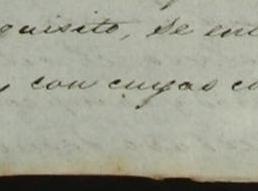 quisito, se en
, con cuyas co